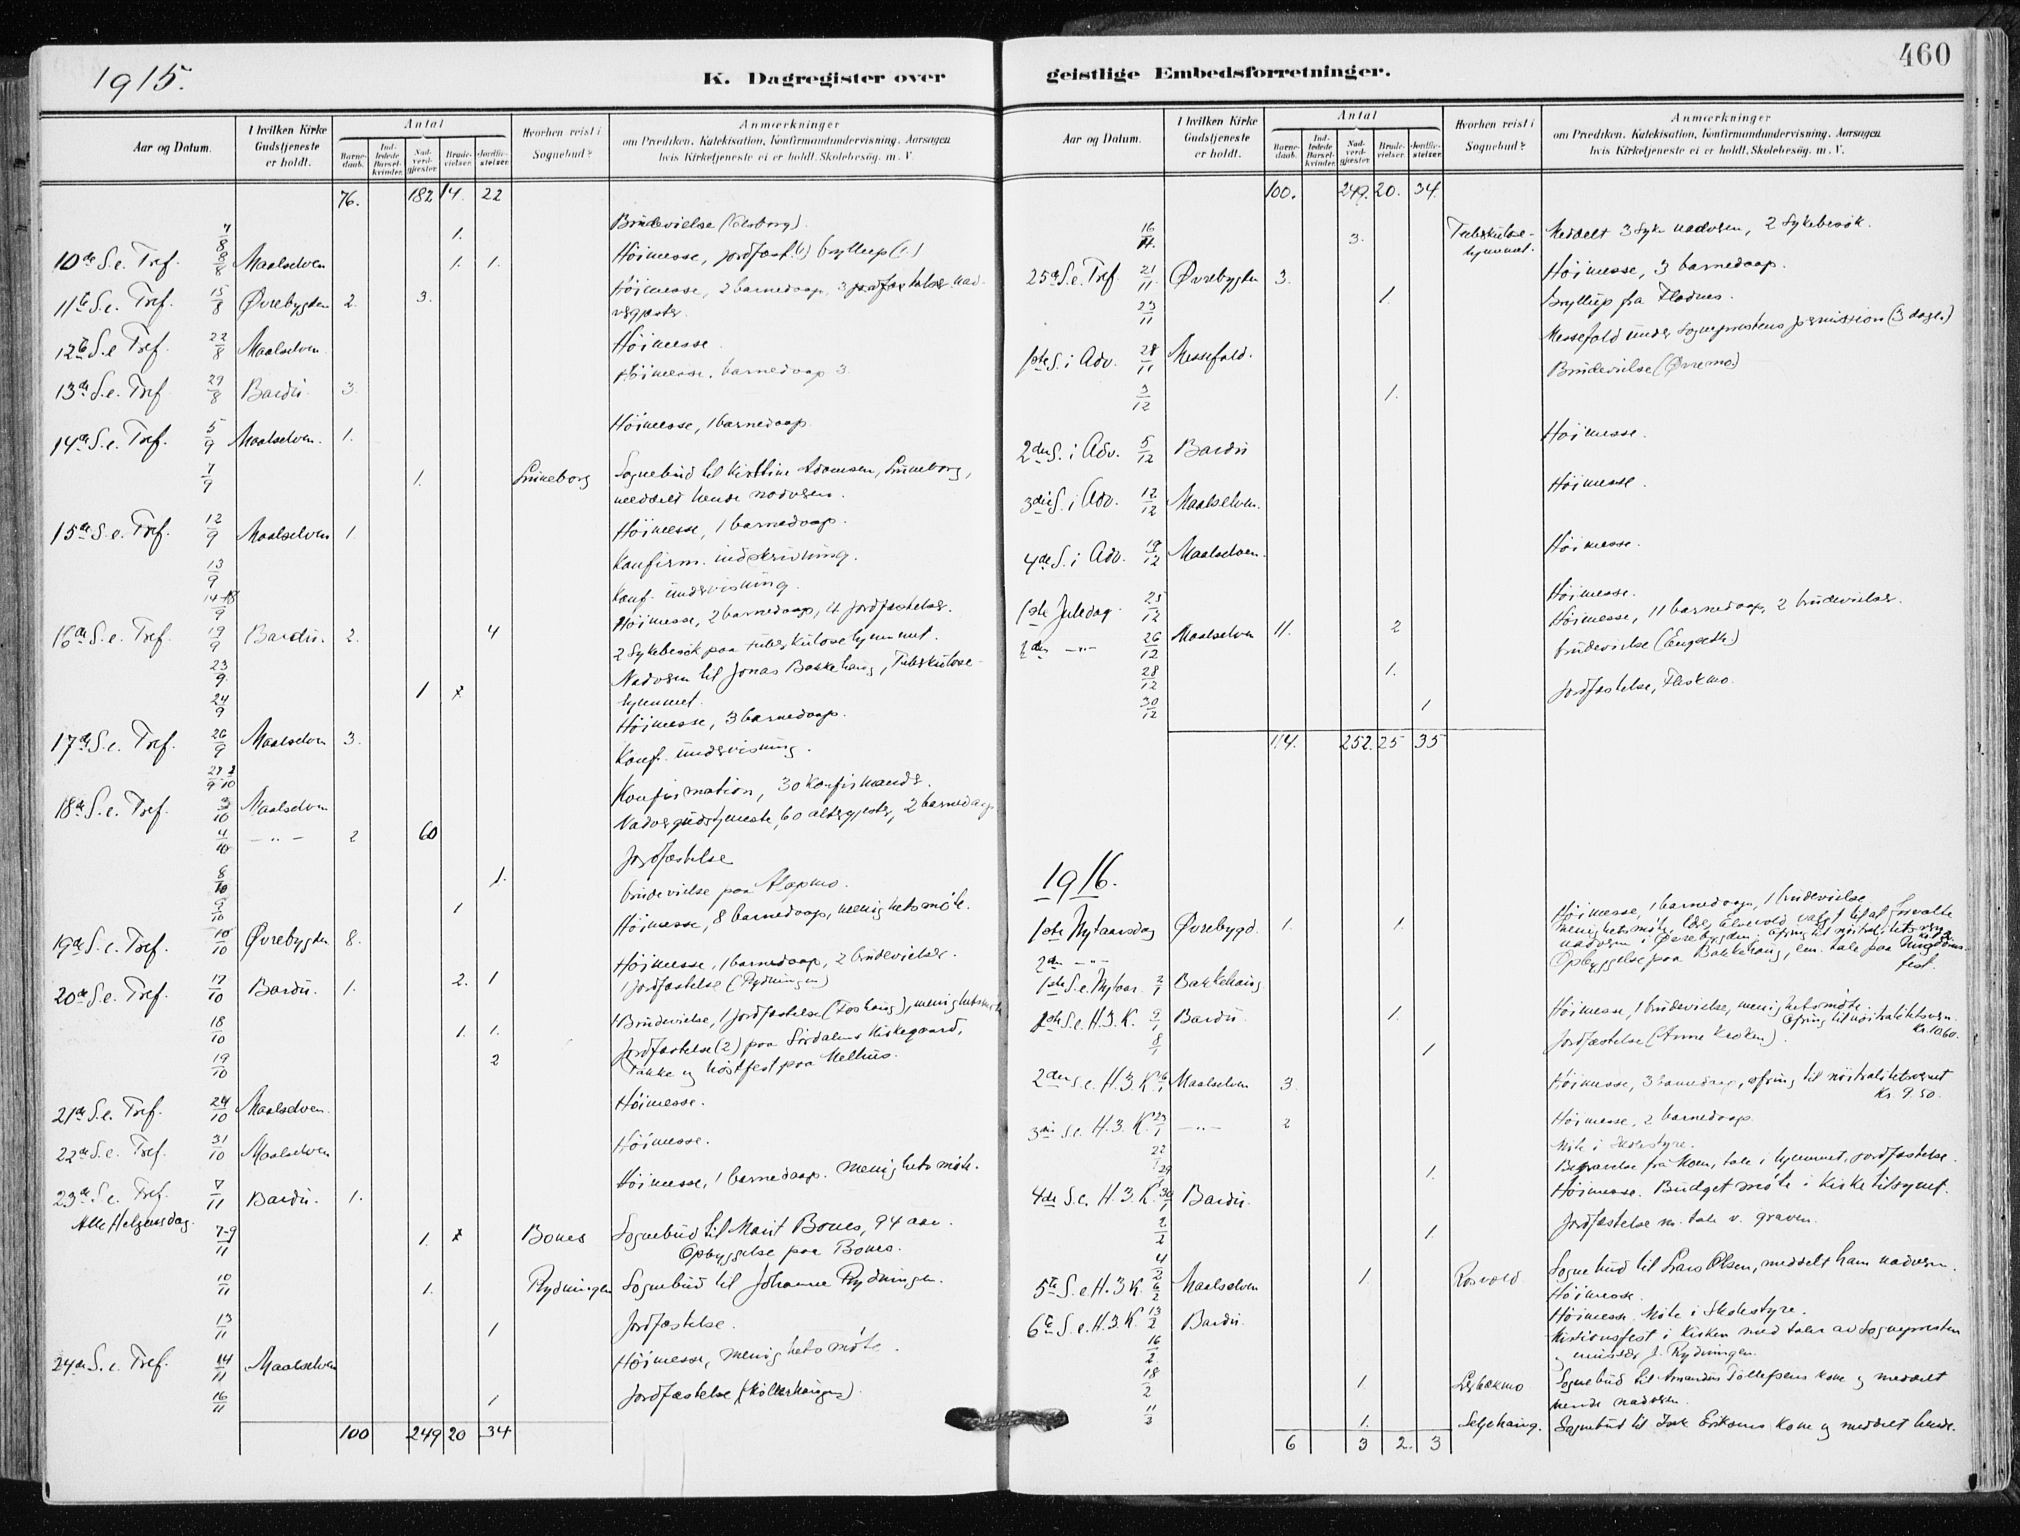 1915.
K. Dagregister over
Aar og Datum.
I hvilken Kirke Gudstjeneste er holdt.
Antal
Barne-daab.
Ind-ledede Barsel-kvinder.
Nad-verd-gjester.
Brude-vielser.
Jordfæ-stelser.
Hvorhen reist i Sognebud?
Anmærkninger
om Prædiken. Katekisation, Konfirmandundervisning. Aarsagen
hvis Kirketjeneste ei er holdt. Skolebesøg. m. V.
76. 182 14. 22
7/8 1. Brudevielse
10de S. e. Tref. 8/8 Maalselven 1. 1. Høimesse, jordfæst. (1) bryllup (1)
11te S. e. Tref. 15/8 Øvrebygden 2. 3. Høimesse, 2 barnedaap, 3 nad-
vergjester.
12te S. e Tref. 22/8 Maalselven Høimesse.
13de S. e. Tref. 29/8 Bardu. 3. Høimesse. barnedaap 3.
14de S. e. Tref. 5/9 Maalselven. 1. Høimesse, 1 barnedaap.
7/9 1. Lunneborg Sognebud til Kirstine Adamsen, Lunneborg,
meddelt hende nadveren.
15de S. e. Tref. 12/9 Maalselven 1. Høimesse, 1 barnedaap.
13/9 Konfirm. indskrivning.
14-18/9 Konf. undervisning.
16de S. e. Tref. 19/9 Bardu. 2. 4 Høimesse, 2 barnedaap, 4 jordfæstelser.
23/9. 2 Sykebesøk paa tuberkulosehjemmet.
24/9 1 Nadveren til Jonas Bakkehaug, Tuberkulose-
hjemmet.
17de S. e. Tref. 26/9 Maalselven 3. Høimesse, 3 barnedaap.
27/9-2/10 Konf. undervisning.
18de S. e. Tref. 3/10 Maalselven Konfirmation, 30 konfirmander.
4/10 — " — 2 60 Nadvergudstjeneste, 60 altergjester, 2 barnedaap.
8/10 1. Jordfæstelse
9/10 1 brudevielse paa Alapmo.
19de S. e. Tref. 10/10 Øvrebygden 8. Høimesse, 8 barnedaap, menighetsmøte.
20de S. e. Tref. 17/10 Bardu. 1. 2. 1 Høimesse, 1 barnedaap, 2 brudevielser.
1 jordfæstelse (Rydningen)
18/10 1. 1. 1 Brudevielse, 1 jordfæstelse (Foshaug), menighetsmøte
19/10 2 Jordfæstelse (2) paa Sørdalens Kirkegaard,
Takke og høstfest paa Melhus.
21de S. e. Tref. 24/10 Maalselven. Høimesse.
22de S. e. Tref. 31/10 Maalselven Høimesse.
23de S. e. Tref. 7/11 Bardu. 1. Høimesse, 1 barnedaap. menighetsmøte.
Alle Helgensdag.
7-9/11 1. Bones Sognebud til Marit Bones, 94 aar.
Opbyggelse paa Bones.
10/11 1. Rydningen Sognebud til Johanne Rydningen.
13/11 1 Jordfæstelse.
24de S. e. Tref. 14/11 Maalselven Høimesse, menighetsmøte.
16/11 1 Jordfæstelse
100 249 20 34
460
geistlige Embedsforretninger.
Aar og Datum.
I hvilken Kirke Gudstjeneste er holdt.
Antal
Barne-daab.
Ind-ledede Barsel-kvinder.
Nad-verd-gjester.
Brude-vielser.
Jordfæ-stelser.
Hvorhen reist i Sognebud?
Anmærkninger
om Prædiken. Katekisation, Konfirmandundervisning. Aarsagen
hvis Kirketjeneste ei er holdt. Skolebesøg. m. V.
100. 249. 20. 34.
16/11. 3. Tuberkulose-hjemmet. Meddelt 3 syke nadveren, 2 sykebesøk.
25de S. e. Tref 21/11. Øvrebygden 3. Høimesse, 3 barnedaap.
23/11 1. Bryllup fra Flodnes.
1ste S. i Adv. 28/11 Messefald. Messefald under sogneprestens permission (3 dager)
3/12 1. Brudevielse (Øvremo)
2den S. i Adv. 5/12 Bardu Høimesse.
3die S. i Adv. 12/12 Maalselven. Høimesse.
4de S. i Adv. 19/12 Maalselven. Høimesse.
1ste Juledag. 25/12 Høimesse.
2den — " — 26/12 Maalselven 11. 2 Høimesse, 11 barnedaap, 2 brudevielser.
28/12 1. brudevielse (Engseth)
30/12 1 Jordfæstelse, Fleskmo.
114. 252. 25 35
1916.
1ste Nytaarsdag Øvrebygd. 1. 1. Høimesse, 1 barnedaap, 1 brudevielse
menighetsmøte, valgt til at forvalte
nadveren i Øvrebygden. Ofring til nøitralitetsvern
2den — " — Opbyggelse paa Bakkehaug, em. tale paa Ungdoms-
fest.
1ste S. e. Nytaar 2/1 Bakkehaug
1ste S. e. H. 3. K. 9/1 Bardu. 1. Høimesse, 1 brudevielse, menighetsmøte
Ofring til nøitralitetsvern. Kr. 10.60.
8/1 1 Jordfæstelse (Anne Kroken).
2den S. e. H. 3 K. 16/1 Maalselven 3. Høimesse, 3 barnedaap, ofring til nøitralitetsvernet
Kr. 9.50.
3die S. e. H. 3. K. 23/1 — " — 2 Høimesse, 2 barnedaap.
22/1 Møte i Skolestyre.
29/1 1. Begravelse fra Moen, tale i hjemmet, jordfæstelse.
4de S. e. H. 3. K. 30/1 Bardu. Høimesse. Budgetmøte i kirketilsynet.
2/2 1. Jordfæstelse m. tale v. graven.
4/2 1. Rosvold Sognebud til Lars Olsen, meddelt ham nadveren.
5te S. e H. 3 K. 6/2 Maalselven Høimesse.
6te S. e. H. 3. K. 13/2 Bardu. Høimesse. Møte i Skolestyre.
16/2. Misionsfest i Kirken med taler av sognepresten
og J. Rydningen.
18/2 1. Sognebud til Amandus Tollefsens kone og meddelt
hende nadveren.
11/3 1. Seljehaug. Sognebud til Eriksens kone og meddelt hende.
6 3 2. 3